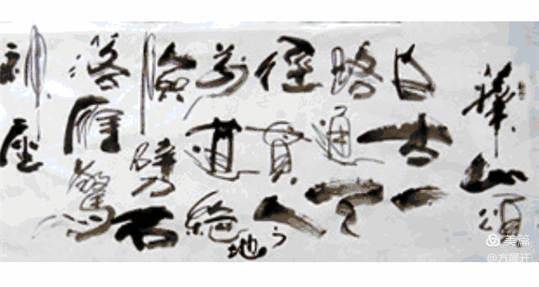 華山頌
自古一
路通天
徑貫人
道絕地
險劈石
落雁驚
神座
美篇